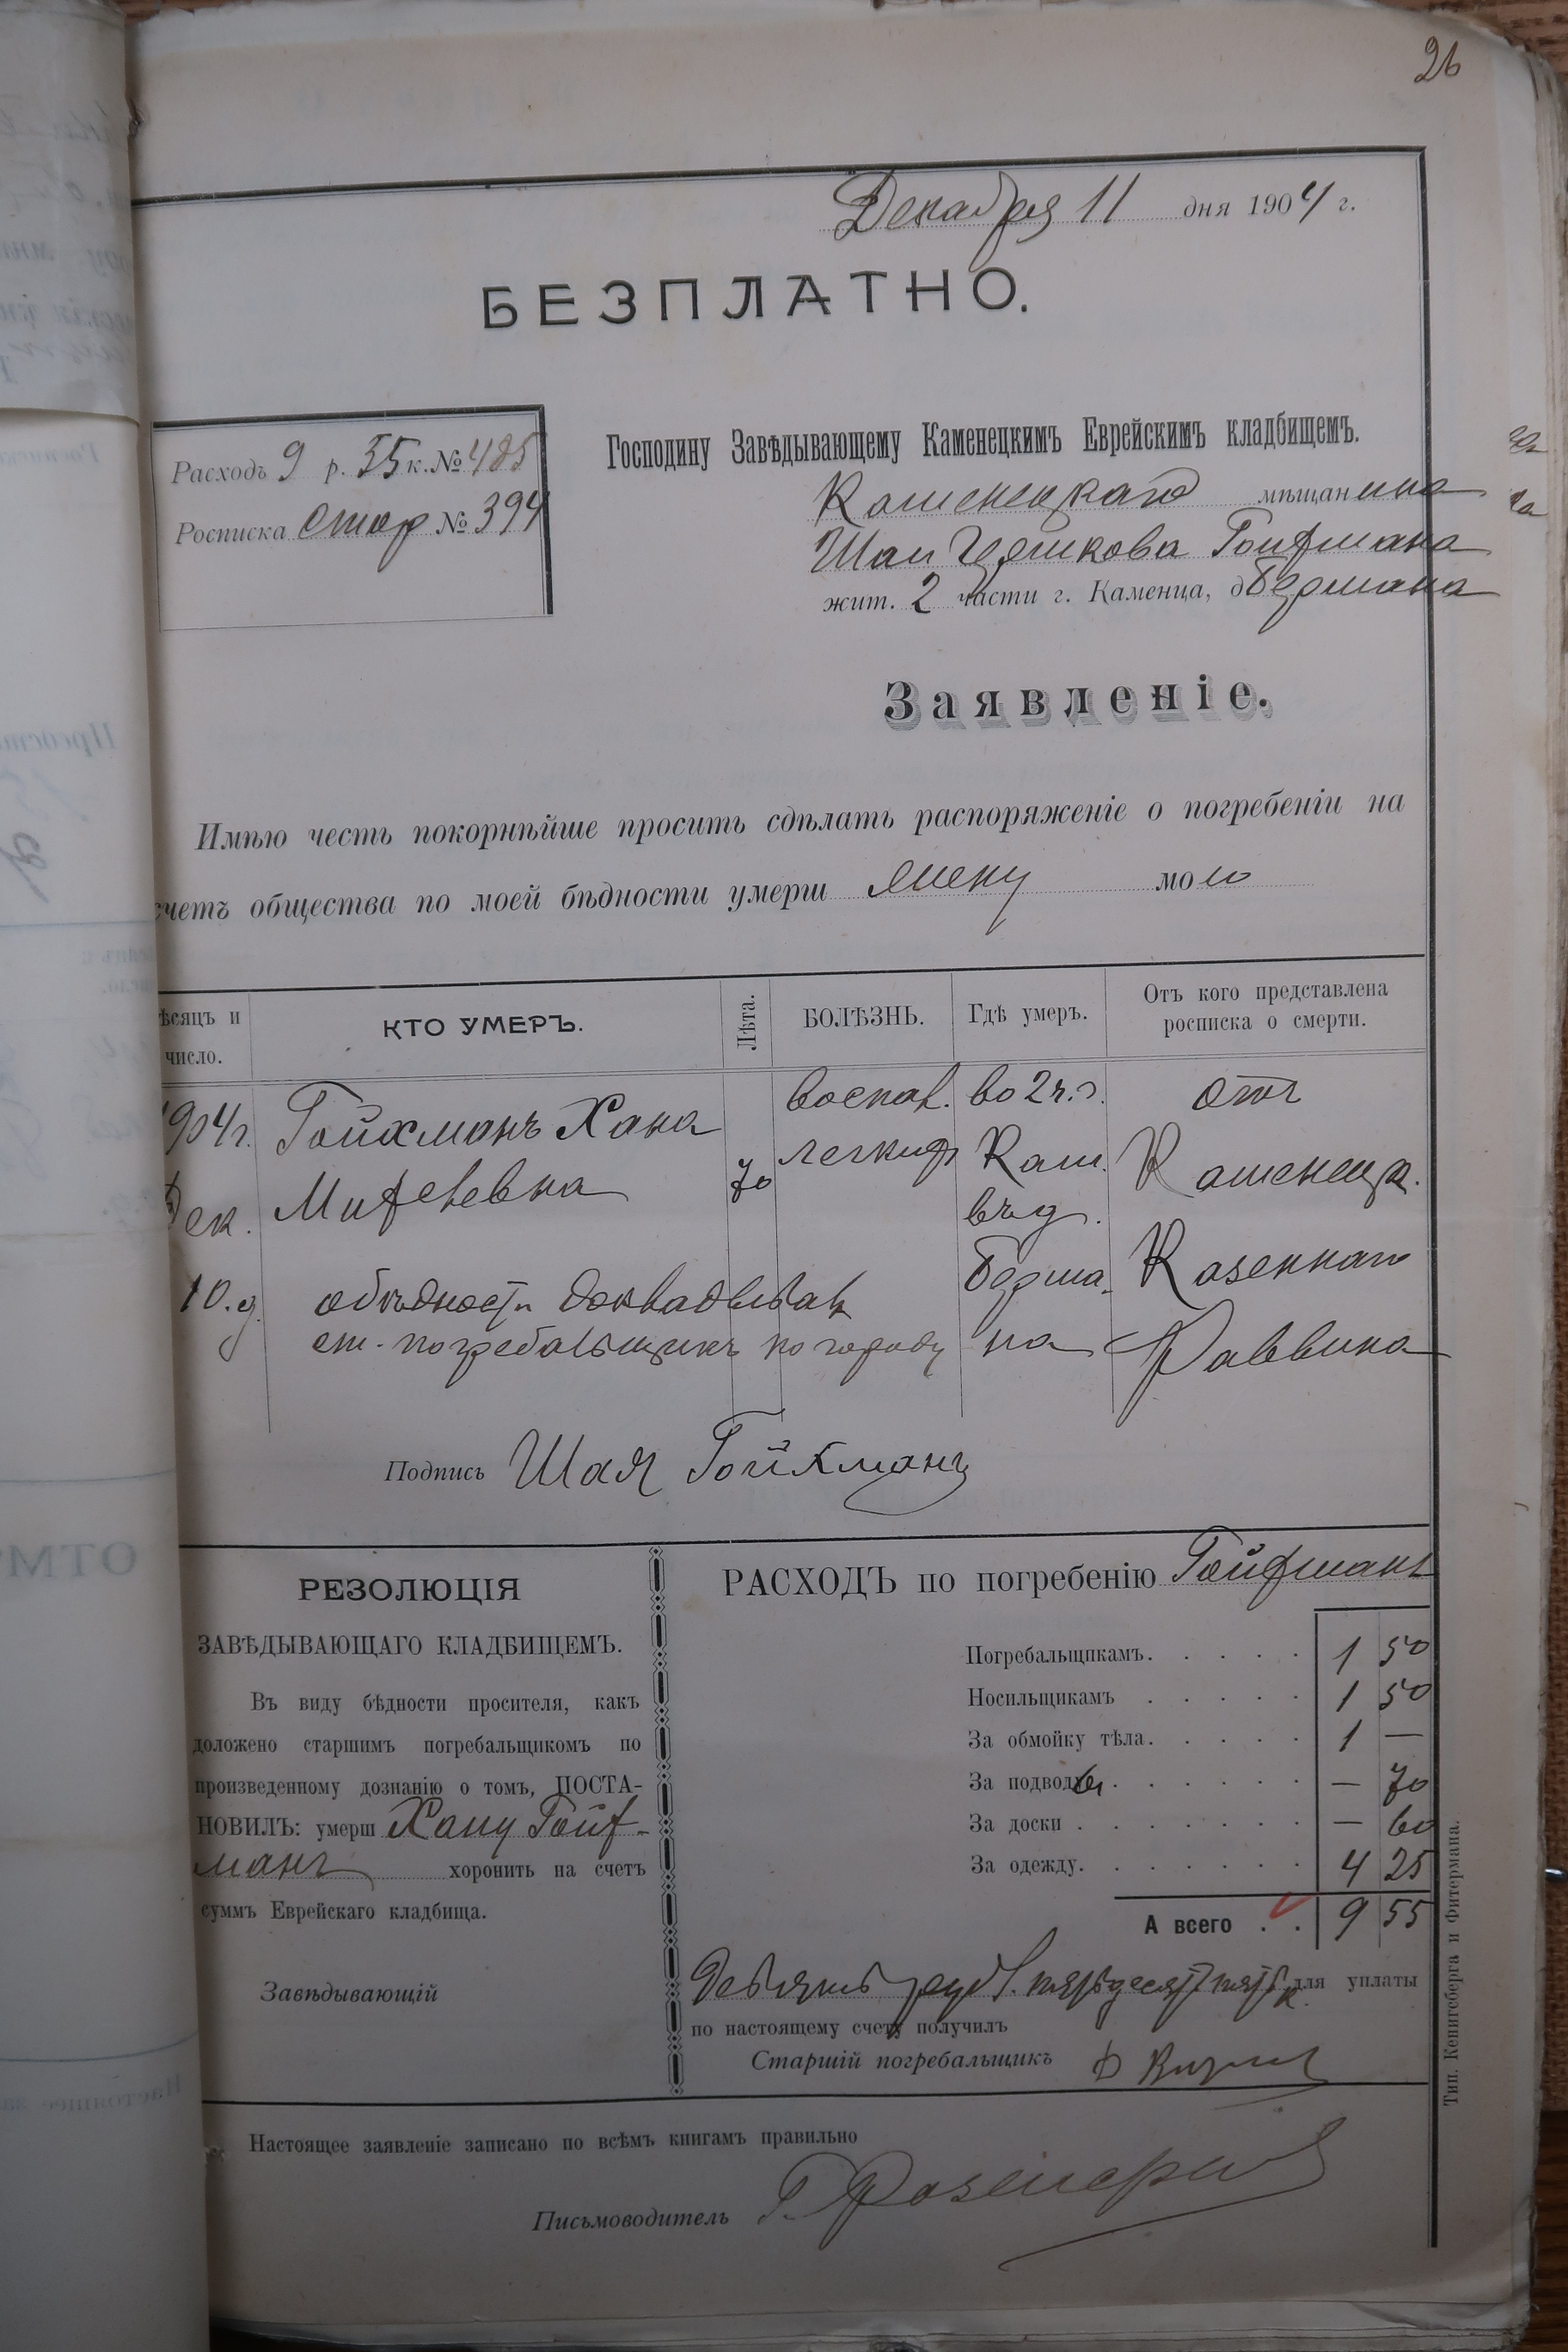 26
Декабря 11 дня 1904 г.
БЕЗПЛАТНО.
Расходъ 9 р. 55 к. № 485
Росписка стар № 394
Господину Завѣдывающему Каменецкимъ Еврейскимъ кладбищемъ.
Каменецкаго мѣщанина
Шаи Гойфмана
жит. 2 части г. Каменца, д Бермана
Заявленіе.
Имѣю честь покорнѣйше просить сдѣлать распоряженіе о погребеніи на
счетъ общества по моей бѣдности умерш жену мою
ѣсяцъ и число.
КТО УМЕРЪ.
Лѣта.
БОЛѢЗНЬ.
Гдѣ умеръ.
Отъ кого представлена росписка о смерти.
904 г. Гойхманъ Хана воспал. во 2 ч. г. отъ
Дек. 70 легкихъ Кам. Каменецк.
въ д.
10.д. о бѣдности докладывалъ Берма- Казеннаго
ст. погребальщикъ по городу на Раввина
Подпись Шая Гойхманъ
РЕЗОЛЮЦІЯ
ЗАВѢДЫВАЮЩАГО КЛАДБИЩЕМЪ.
Въ виду бѣдности просителя, какъ
доложено старшимъ погребальщикомъ по
произведенному дознанію о томъ, ПОСТА-
НОВИЛЪ: умерш Хану Гойф-
манъ хоронить на счетъ
суммъ Еврейскаго кладбища.
Завѣдывающій
РАСХОДЪ по погребенію Гойфманъ
Погребальщикамъ. . . . . 1 50
Носильщикамъ . . . . . 1 50
За обмойку тѣла. . . . . 1 —
За подводы . . . . . . — 70
За доски . . . . . . . — 60
За одежду. . . . . . . 4 25
А всего . . 9 55
Девять руб. пятьдесят пять к. для уплаты
по настоящему счету получилъ
Старшій погребальщикъ
Настоящее заявленіе записано по всѣмъ книгамъ правильно
Письмоводитель
Тип. Кенигсберга и Фитермана.